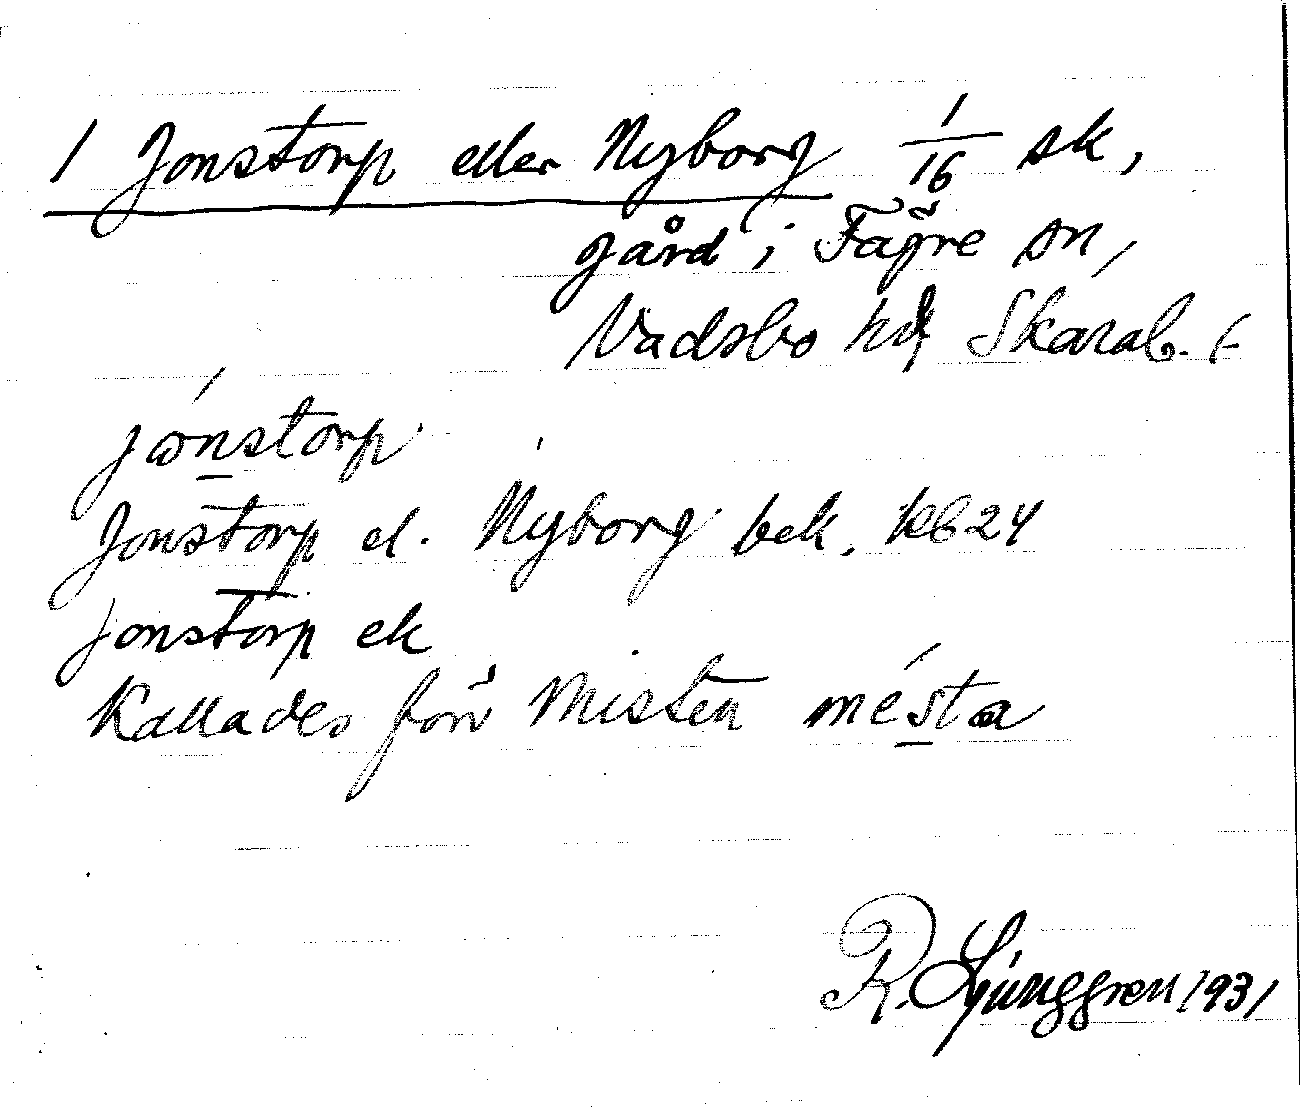 1 Jonstorp eller Nyborg 1/16 sk,
gård i Fägre sn,
Vadsbo hd Skarab. l
jónstorp
Jonstorp el. Nyborg bek. kb 24
Jonstorp ek
Kallades förr Misten mésta
R. Ljunggren 1931